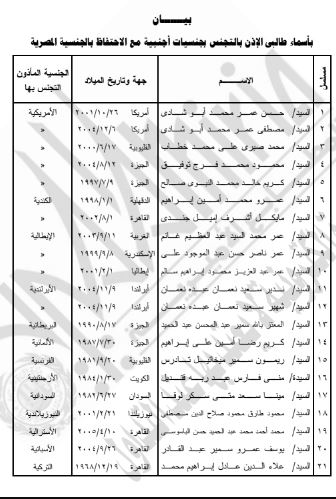 بيـــــان
بأسماء طالبى الإذن بالتجنس بجنسيات أجنبية مع الاحتفاظ بالجنسية المصرية
مسلسل الاســـم جهة وتاريخ الميلاد الجنسية المأذون التجنس بها
١ السيد/ حسن عمر محمد أبو شادى أمريكا ٢٠٠١/١٠/٢٦ الأمريكية
٢ السيد/ مصطفى عمر محمد أبو شادى أمريكا ٢٠٠٤/١٢/٦ «
٣ السيد/ محمد صبرى على محمد خطاب القليوبية ٢٠٠٠/٦/١٧ «
٤ السيد/ محمود محمد فرج توفيق الجيزة ٢٠٠٤/٨/١٢ «
٥ السيد/ كريم خالد محمد النبوى صالح الجيزة ١٩٩٧/٧/٩ «
٦ السيد/ عمرو محمد أمين إبراهيم الدقهلية ١٩٩٨/١/١ الكندية
٧ السيد/ مايكل أشرف إميل جندى القاهرة ٢٠٠٢/٨/١ «
٨ السيد/ عمر محمد السيد عبد العظيم غانم الغربية ٢٠٠٣/٩/١١ الإيطالية
٩ السيد/ عمر ناصر حسن عبد الموجود على الإسكندرية ١٩٩٩/٩/٨ «
١٠ السيد/ عمر عبد العزيز محمود إبراهيم سالم إيطاليا ٢٠٠١/٢/١ «
١١ السيد/ بدير سعيد نعمان عبده نعمان أيرلندا ٢٠٠٤/١١/٩ الأيرلندية
١٢ السيد/ شهير سعيد نعمان عبده نعمان أيرلندا ٢٠٠٤/١١/٩ «
١٣ السيد/ المعتز بالله سمير عبد المحسن عبد الحميد الجيزة ١٩٩٠/٨/١٧ البريطانية
١٤ السيد/ كريم رضا أمين على إبراهيم الجيزة ١٩٨٧/٧/٣٠ الألمانية
١٥ السيد/ ريمون سمير ميخائيل تادرس القليوبية ١٩٨١/٩/٢٠ الفرنسية
١٦ السيدة/ منى فارس عبد ربه قنديل الكويت ١٩٨٤/١/٣٠ الأرجنتينية
١٧ السيد/ مينا سعد متى سكر لوقا السودان ١٩٨٢/٦/٢٧ السودانية
١٨ السيد/ محمود طارق محمود صلاح الدين مصطفى نيوزيلندا ٢٠٠١/٢/٢١ النيوزيلاندية
١٩ السيد/ محمد أحمد محمد عبد الحميد حسن القاهرة ٢٠٠٥/٤/١٠ الأسترالية
٢٠ السيد/ يوسف عمرو سمير عبد القادر القاهرة ٢٠٠٤/٩/٢٦ الأسبانية
٢١ السيد/ علاء الدين عادل إبراهيم محمد القاهرة ١٩٦٨/١٢/١٩ التركية